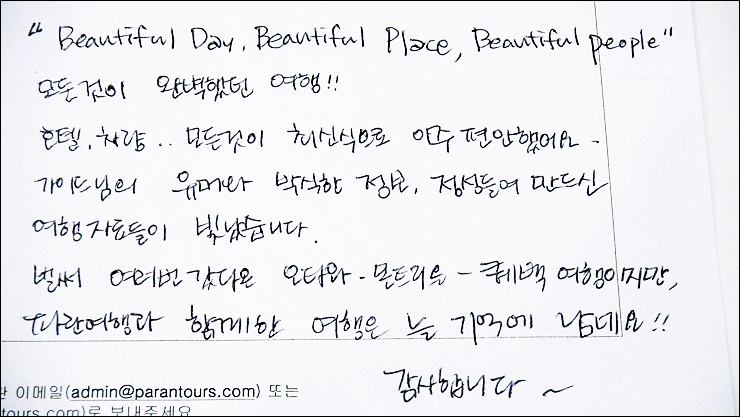 "Beautiful Day, Beautiful Place, Beautiful people"
모든것이 완벽했던 여행!!
호텔, 차량.. 모든것이 최신식으로 아주 편안했어요-
가이드님의 유머와 박식한 정보, 정성들여 만드신
여행자료들이 빛났습니다.
벌써 여러번 갔다온 오타와-몬트리올-퀘백 여행이지만,
파란여행과 함께한 여행은 늘 기억에 남네요!!
감사합니다~
이메일(admin@parantours.com) 또는
tours.com)로 보내주세요